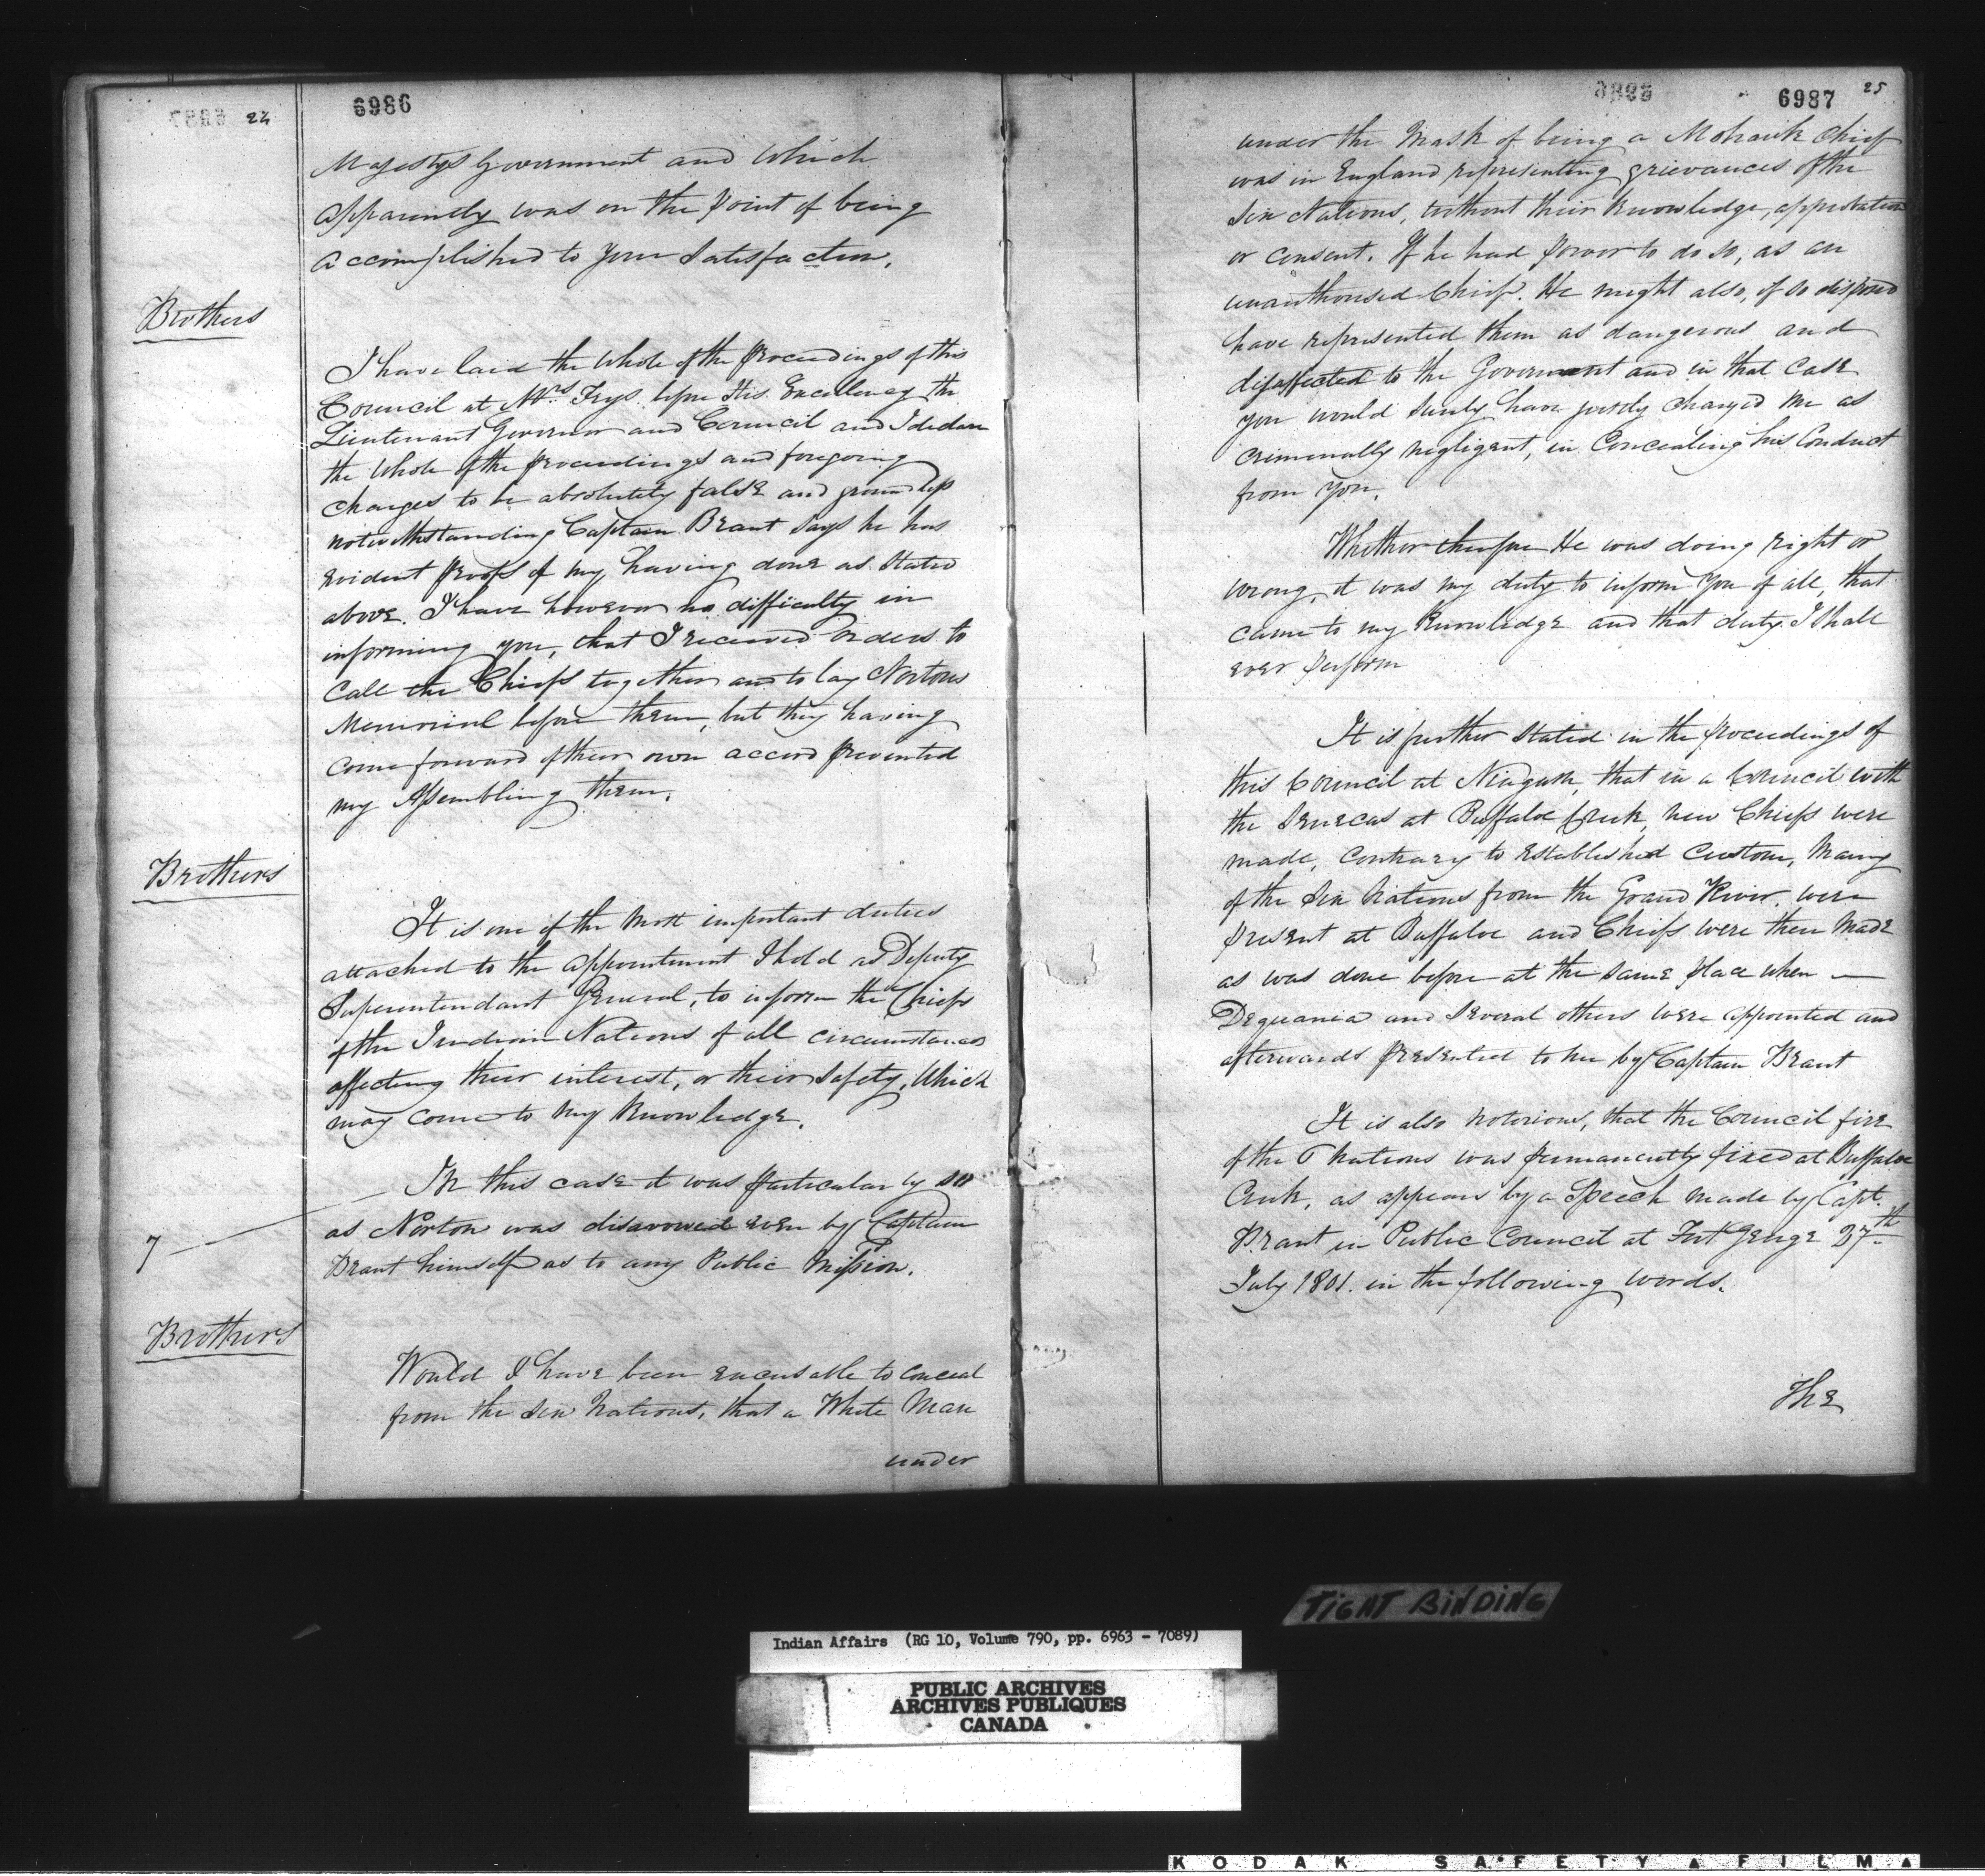 24
6986
Majestys Government and Which
apparently was on the point of being
accomplished to your Satisfaction.
Brothers
I have laid the Whole of the Proceedings of this
Council at Mrs Frys before His Excellency the
Lieutenant Governor and Council and I declare
the Whole of the proceedings and foregoing
charges to be absolutely false and groundless
notwithstanding Captain Brant Says he has
evident proofs of my having done as Stated
above. I have however no difficulty in
informing you, that I received orders to
Call the Chiefs together and to lay Nortons
Memorial before them, but they having
come forward of their own accord prevented
my Assembling them.
Brothers
It is one of the Most important duties
attached to the appointment I hold as Deputy
Superintendant General, to inform the Chiefs
of the Indian Nations of all circumstances
affecting their interest, or their Safety, Which
may come to my Knowledge.
In this case it was particularly so
as Norton was disavowed even by Captain
Brant himself as to any Public Mission.
7
Brothers
Would I have been excusable to conceal
from the Six Nations, that a White Man
under
6987
25
under the Mask of being a Mohawk Chief
was in England representing grievances of the
Six Nations, without their Knowledge, approbation
or consent. If he had power to do so, as an
unauthorised Chief. He might also, if so disposed
have represented them as dangerous and
disaffected to the Government and in that Case
you would surely have justly charged me as
criminally negligent, in Concealing his Conduct
from You.
Whether therefore He was doing right or
wrong, it was my duty to inform You of all, that
came to my Knowledge and that duty I Shall
ever perform
It is further Stated in the proceedings of
this Council at Niagara, that in a Council with
the Senecas at Buffaloe Creek, new Chiefs were
made, Contrary to established Custom, Many
of the Six Nations from the Grand River were
present at Buffaloe and Chiefs were then Made
as was done before at the Same place when —
Dequania and Several others were appointed and
afterwards presented to me by Captain Brant
It is also Notorious, that the Council fire
of the 6 Nations was permanently fixed at Buffaloe
Creek, as appears by a Speech Made by Capt.
Brant in Public Council at Fort George 27th
July 1801. in the following words.
The
TIGHT BINDING
Indian Affairs (RG 10, Volume 790, pp. 6963 - 7089)
PUBLIC ARCHIVES
ARCHIVES PUBLIQUES
CANADA
KODAK SAFETY FILM